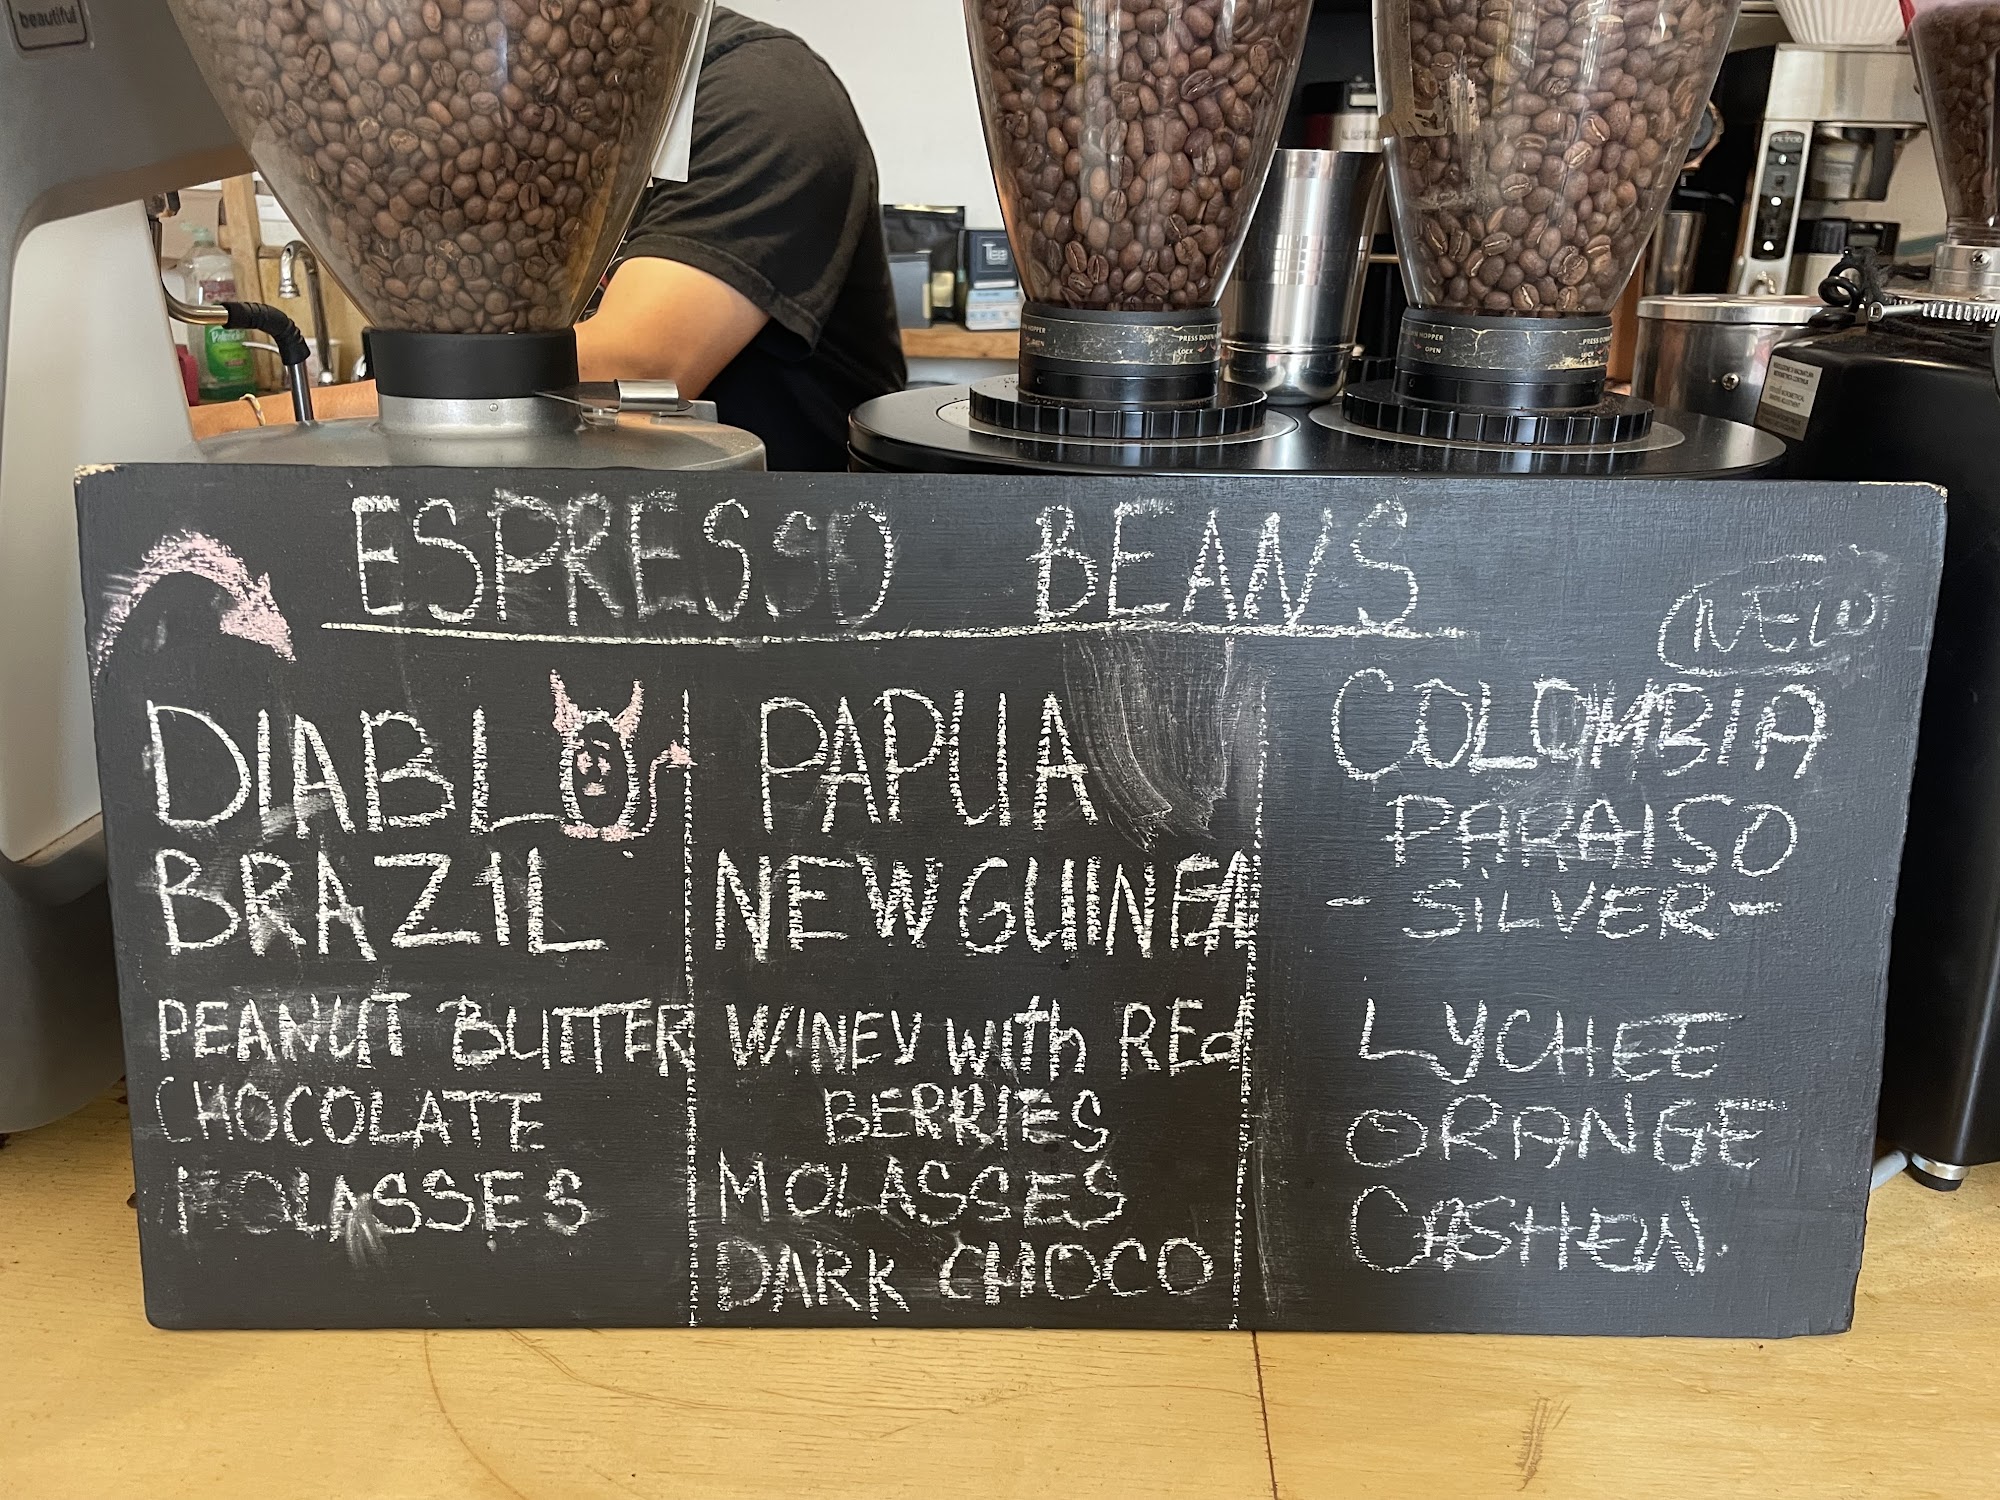 beautiful
Tee
Palmolive
HOPPER
OPEN
PRESS DOWN
LOCK
HOPPER
OPEN
PRESS DOWN
LOCK
ESPRESSO BEANS
DIABLO
BRAZIL
PEANUT BUTTER
CHOCOLATE
MOLASSES
PAPUA
NEW GUINEA
WINEY with RED
BERRIES
MOLASSES
DARK CHOCO
NEW
COLOMBIA
PARAISO
- SiLVER -
LYCHEE
ORANGE
CASHEW.